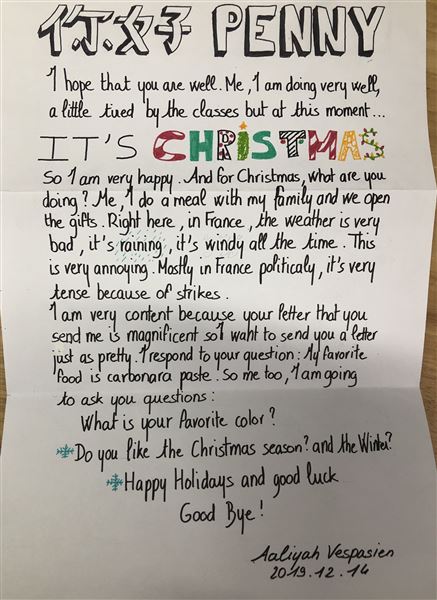 你好 PENNY
I hope that you are well. Me, I am doing very well,
a little tired by the classes but at this moment...
IT'S CHRISTMAS
So I am very happy. And for Christmas, what are you
doing? Me, I do a meal with my family and we open
the gifts. Right here, in France, the weather is very
bad, it's raining, it's windy all the time. This
is very annoying. Mostly in France politicaly, it's very
tense because of strikes.
I am very content because your letter that you
send me is magnificent so I want to send you a letter
just as pretty. I respond to your question: My favorite
food is carbonara paste. So me too, I am going
to ask you questions:
What is your favorite color?
Do you like the Christmas season? and the Winter?
Happy Holidays and good luck
Good Bye!
Aaliyah Vespasien
2019.12.14